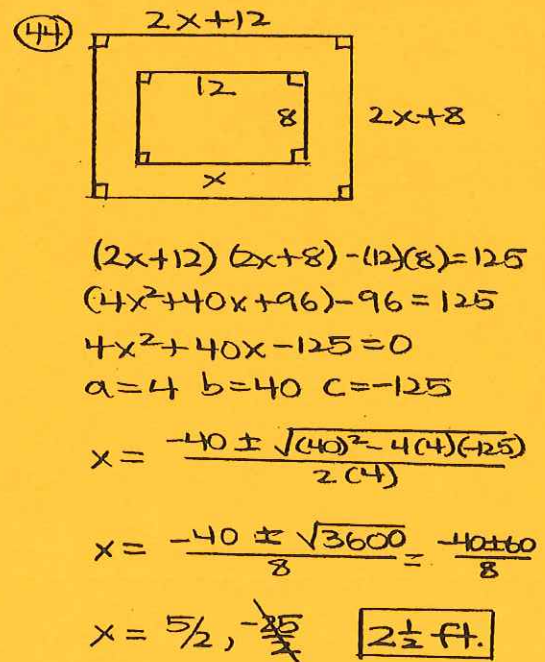 44
2x+12
12
8
2x+8
x
(2x+12)(2x+8)-(12)(8)=125
(4x²+40x+96)-96=125
4x²+40x-125=0
a=4 b=40 c=-125
x = (-40 ± √((40)²-4(4)(-125))) / 2(4)
x = (-40 ± √3600) / 8 = (-40±60) / 8
x = 5/2, -25/2 2 1/2 ft.